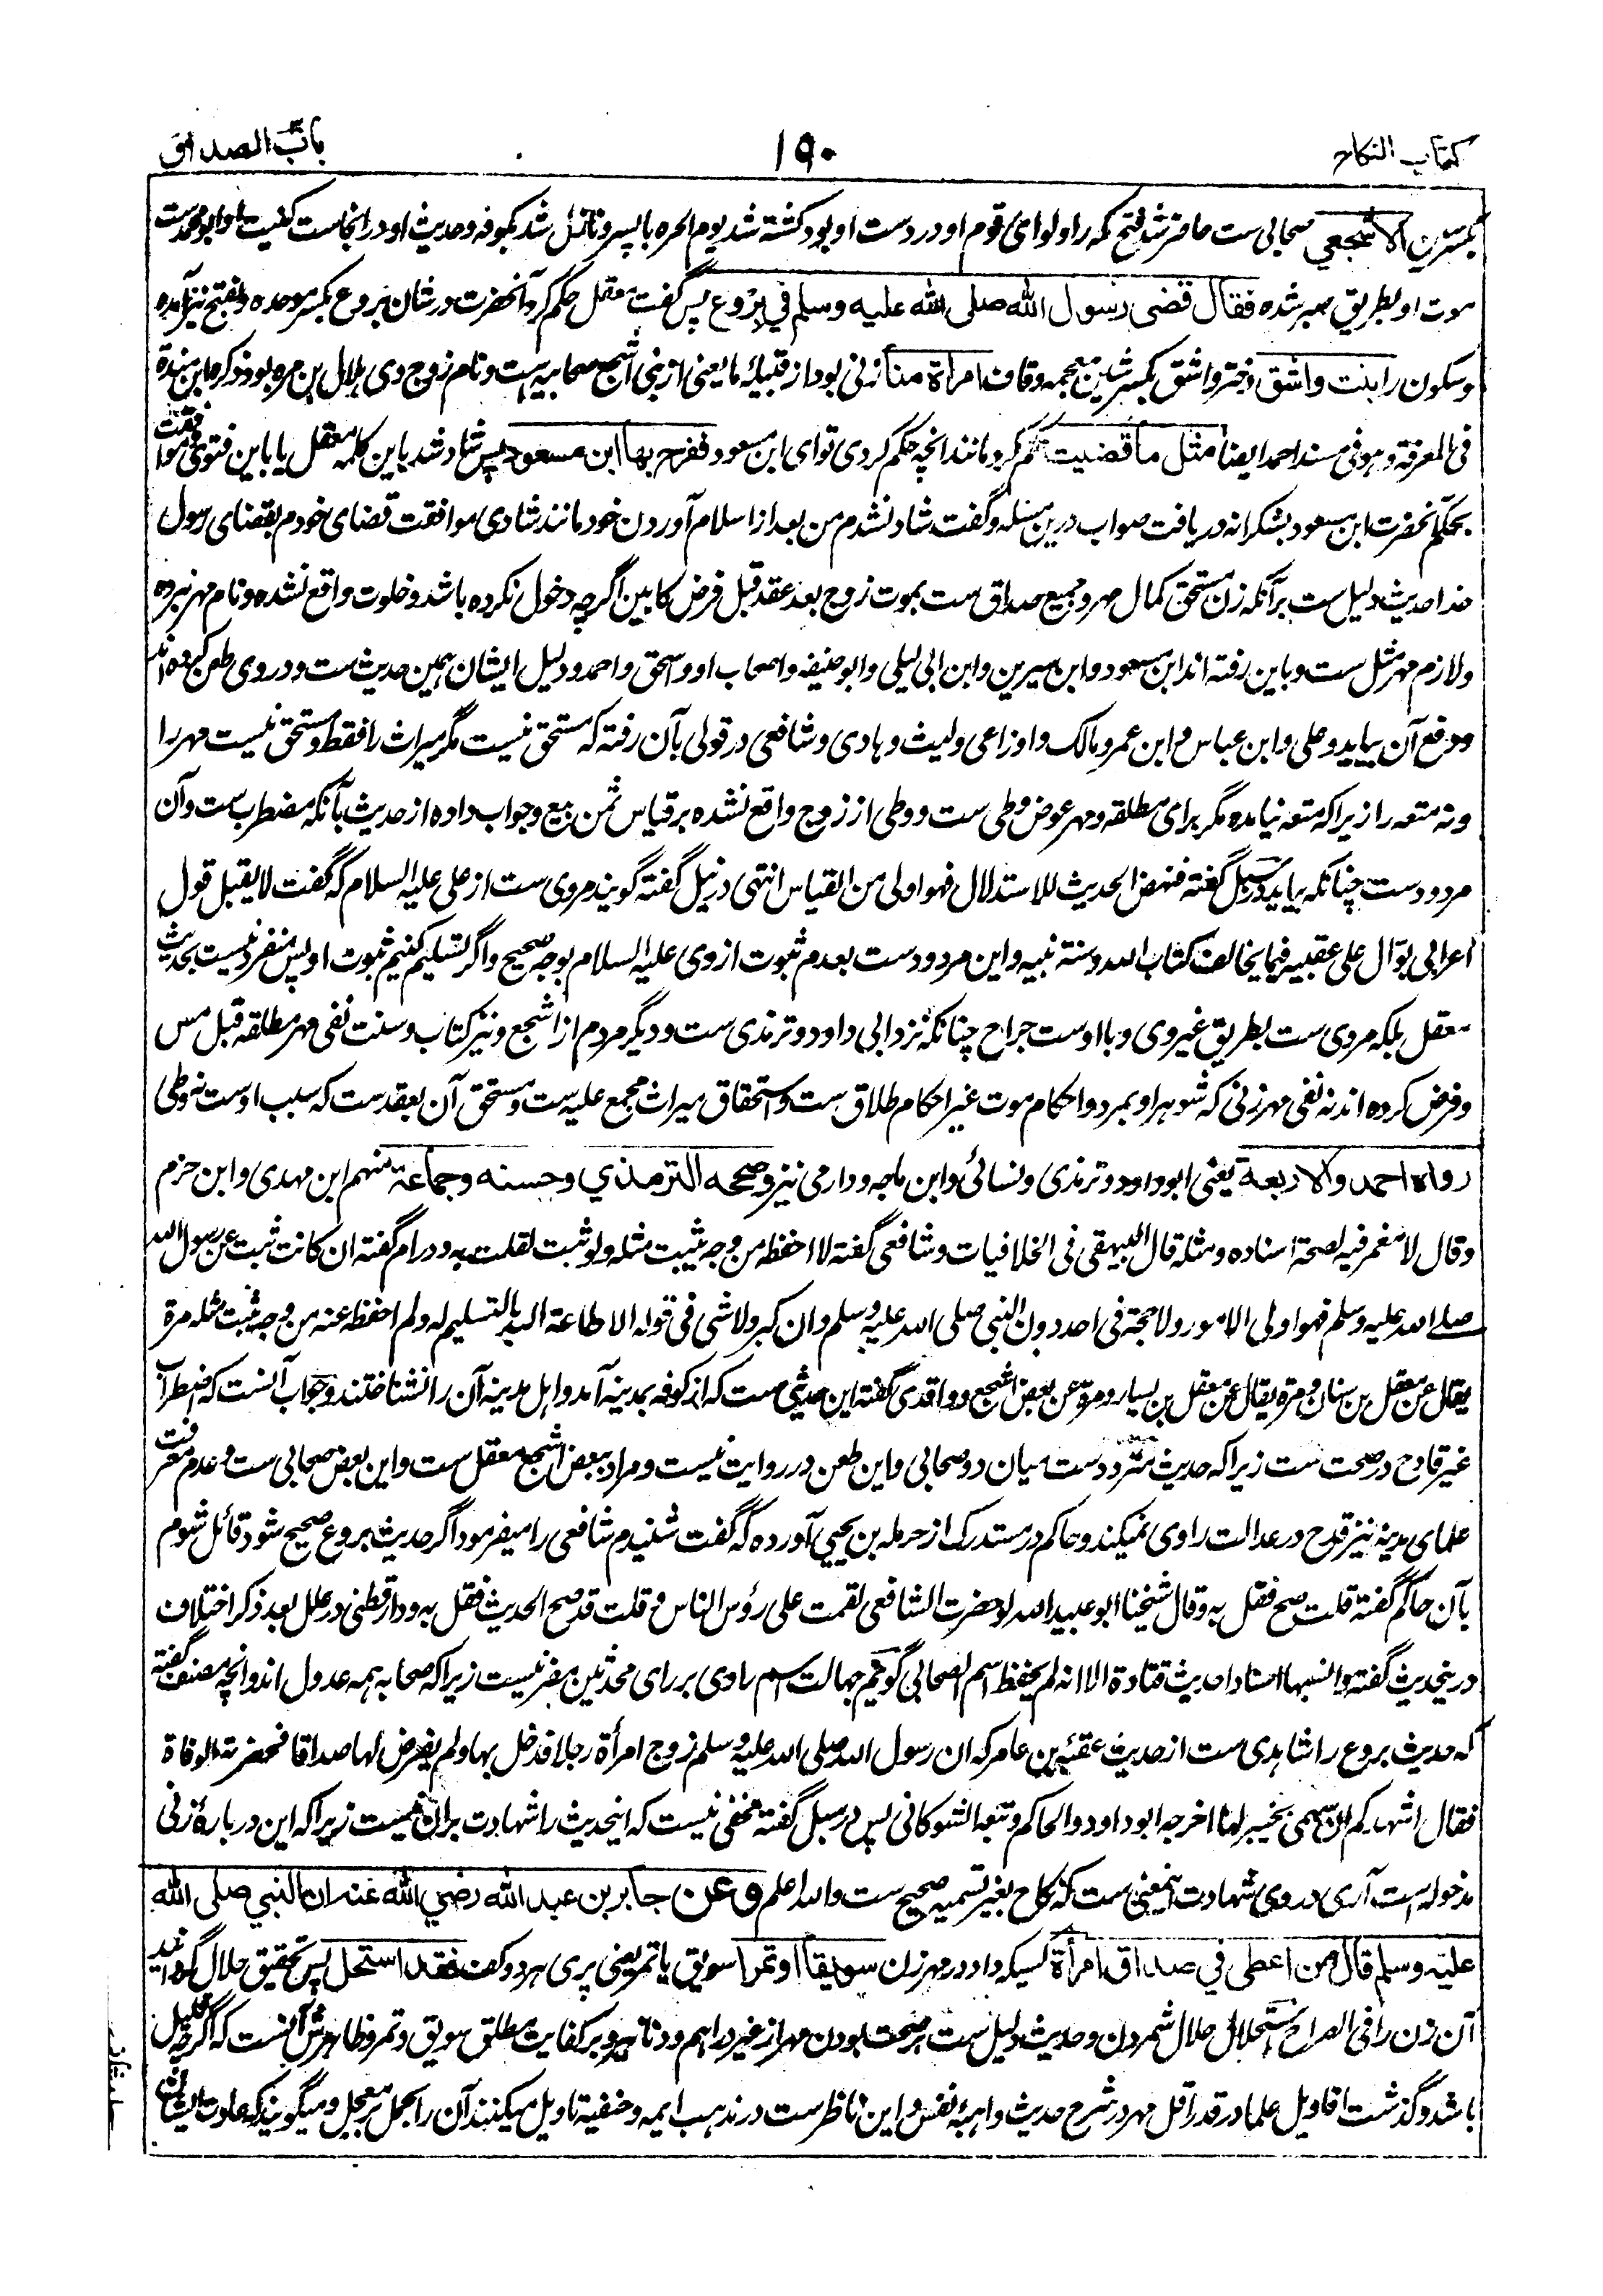 کتاب النکاح
۱۹۰
باب الصداق
بکسر سین الاشجعی صحابی ست حاضر شد فتح مکه را ولوای قوم او در دست او بود کشته شد یوم الحره با پسر و نازل شد بکوفه و حدیث او در انجاست کنیت او ابو محمد ست
موت او بطریق صبر شده فقال قضی رسول الله صلی الله علیه وسلم في بِرْوَع پس گفت معقل حکم کرد آنحضرت در شان بروع بکسر موحده و بفتح نیز آمده
و سکون را بنت واشق دختر واشق بکسر شین معجمه وقاف امرأة منا زنی بود از قبیلهٔ ما یعنی از بنی اشجع صحابیه است و نام زوج وی هلال بن مره بود ذکره ابن منده
فی المعرفة و هو فی مسند احمد ایضا مثل ما قضیت حکم کرد مانند انچه حکم کردی تو ای ابن مسعود ففرح بها ابن مسعود پس شاد شد باین کلمه معقل یا باین فتوی موافقت
بحکم آنحضرت ابن مسعود بشکرانه دریافت صواب درین مسئله و گفت شاد نشدم من بعد از اسلام آوردن خود مانند شادی موافقت قضای خودم بقضای رسول
خدا حدیث دلیل ست برآنکه زن مستحق کمال مهر و جمیع صداق ست بموت زوج بعد عقد قبل فرض کابین اگرچه دخول نکرده باشد و خلوت واقع نشده و نام مهر نبرده
ولازم مهر مثل ست و باین رفته اند ابن مسعود و ابن سیرین و ابن ابی لیلی و ابو حنیفه و اصحاب او و اسحق و احمد و دلیل ایشان همین حدیث ست و در وی طعن کرده اند
و دفع آن بیاید و علی و ابن عباس و ابن عمر و مالک و اوزاعی و لیث و هادی و شافعی در قولی بآن رفته که مستحق نیست مگر میراث را فقط و مستحق نیست مهر را
و نه متعه را زیرا که متعه نیامده مگر برای مطلقه و مهر عوض وطی ست و وطی از زوج واقع نشده بر قیاس ثمن بیع و جواب داده از حدیث بآنکه مضطرب ست و آن
مردودست چنانکه بیاید در سبل گفته فنهض الحدیث للاستدلال فهو اولی من القیاس انتهی در نیل گفته گویند مروی ست از علی علیه السلام که گفت لا یقبل قول
اعرابی بوّال علی عقبیه فیما یخالف کتاب الله و سنة نبیه و این مردودست بعدم ثبوت از وی علیه السلام بوجه صحیح و اگر تسلیم کنیم ثبوت او پس منفرد نیست بحدیث
معقل بلکه مروی ست بطریق غیر وی و با اوست جراح چنانکه نزد ابی داود و ترمذی ست و دیگر مردم از اشجع و نیز کتاب و سنت نفی مهر مطلقه قبل مس
و فرض کرده اند نه نفی مهر زنی که شوهر او بمرد و احکام موت غیر احکام طلاق ست و استحقاق میراث مجمع علیه ست و مستحق آن بعقدست که سبب اوست نه وطی
رواه احمد والاربعة یعنی ابو داود و ترمذی و نسائی و ابن ماجه و دارمی نیز وصححه الترمذي وحسنه وجماعة منهم ابن مهدی و ابن حزم
و قال لا مغمز فیه لصحة اسناده و مثله قال البیهقی فی الخلافیات و شافعی گفته لا احفظه من وجه یثبت مثله ولو ثبت لقلت به و در ام گفته ان کانت ثبت عن رسول الله
صلے الله علیه وسلم فهو اولی الامور ولا حجة فی احد دون النبی صلی الله علیه وسلم وان کبر ولا شی فی قوله الا طاعة الله بالتسلیم له ولم احفظه عنه من وجه یثبت مثله مرة
یقال عن معقل بن سنان و مرة یقال عن معقل بن یسار و مرة عن بعض اشجع و واقدی گفته این حدیثی ست که از کوفه بمدینه آمد و اهل مدینه آن را نشناختند و جواب آنست که اضطراب
غیر قادح در صحت ست زیرا که حدیث مترددست میان دو صحابی و این طعن در روایت نیست و مراد ببعض اشجع معقل ست و این بعض صحابی ست و عدم معرفت
علمای مدینه نیز قدح در عدالت راوی نمیکند و حاکم در مستدرک از حرمله بن یحیی آورده که گفت شنیدم شافعی را میفرمود اگر حدیث بروع صحیح شود قائل شوم
بآن حاکم گفته قلت صح فقل به و قال شیخنا ابو عبید الله لو حضرت الشافعی لقمت علی رؤس الناس و قلت قد صح الحدیث فقل به و دارقطنی در علل بعد ذکر اختلاف
درینحدیث گفته و انسبها اسنادا حدیث قتادة الا انه لم یحفظ اسم الصحابی گویم جهالت اسم راوی بر رای محدثین مضر نیست زیرا که صحابه همه عدول اند و انچه مصنف گفته
که حدیث بروع را شاهدی ست از حدیث عقبه بن عامر که ان رسول الله صلی الله علیه وسلم زوج امرأة رجلا فدخل بها ولم یفرض لها صداقا فحضرته الوفاة
فقال اشهدکم ان سهمی بخیبر لها اخرجه ابو داود و الحاکم و تبعه الشوکانی پس در سبل گفته مخفی نیست که اینحدیث را شهادت بران نیست زیرا که این دربارهٔ زنی
مدخوله است آری در وی شهادت اینمعنی ست که نکاح بغیر تسمیه صحیح ست والله اعلم وعن جابر بن عبد الله رضي الله عنه ان النبي صلی الله
علیه وسلم قال من اعطی في صداق امرأة کسیکه داد در مهر زن سویقا او تمرا سویق یا تمر یعنی پری هر دو کف فقد استحل پس تحقیق حلال گردانید
آن زن را فی الصراح استحلال حلال شمردن و حدیث دلیل ست بر صحت بودن مهر از غیر دراهم و دنانیر و بر کفایت مطلق سویق و تمر و ظاهرش آنست که اگرچه قلیل
باشد و گذشت اقاویل علما در قدر اقل مهر در شرح حدیث واهبهٔ نفس و این ناظرست در مذهب ایمه و حنفیه تاویل میکنند آن را بحمل بر معجل و میگویند که عادت ایشان